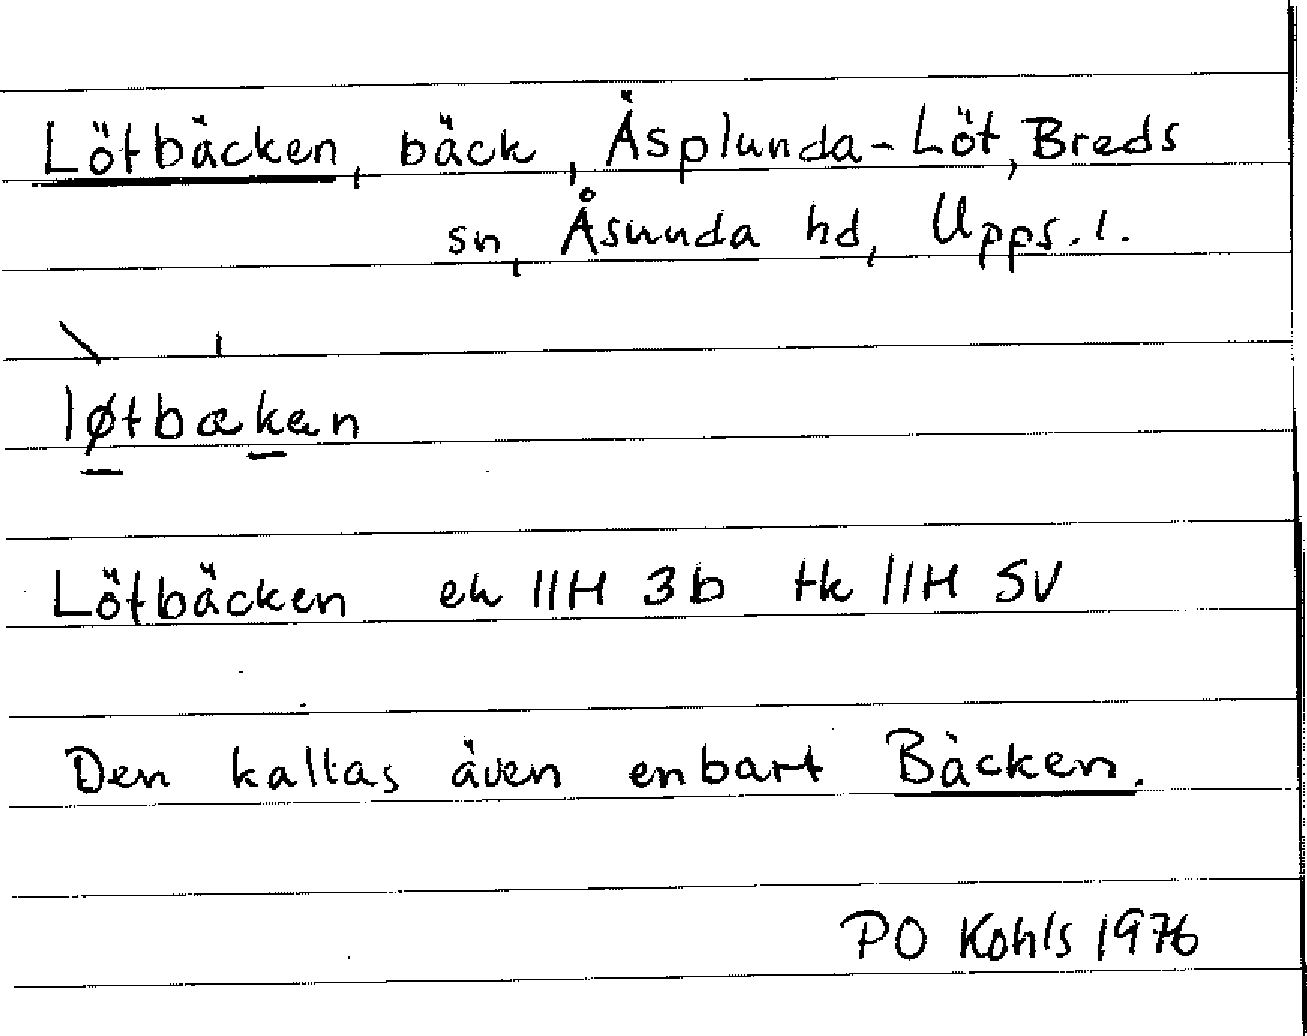 Lötbäcken, bäck, Äsplunda-Löt, Breds
sn, Åsunda hd, Upps. l.
løtbækæn
Lötbäcken ek 11H 3b tk 11H SV
Den kallas även enbart Bäcken.
PO Kohls 1976